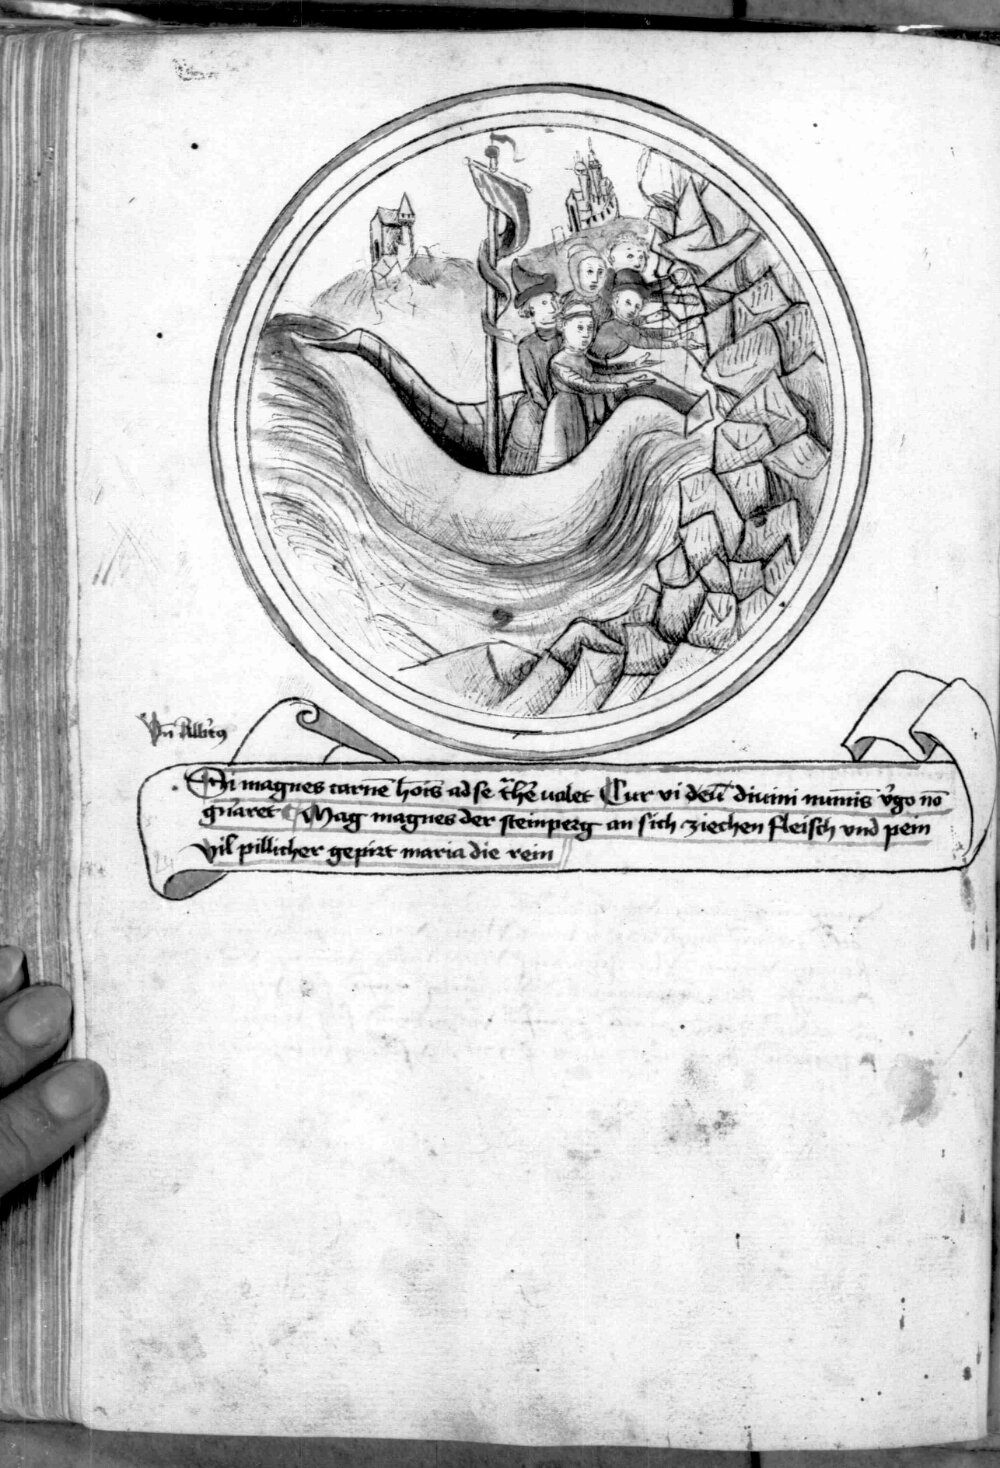 Vn̄ Alb̄tꝰ
Si magnes carnē hoīs ad se t̄he valet Cur vi deū diuini numīs v̄go nō
gn̄aret Mag magnes der steinperg an sich ziechen fleisch vnd pein
vil pillicher gepirt maria die rein